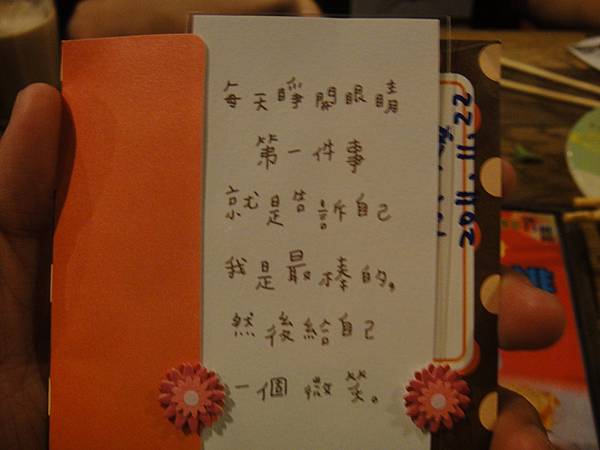 每天睜開眼睛
第一件事
就是告訴自己
我是最棒的。
然後給自己
一個微笑。
2011.11.22